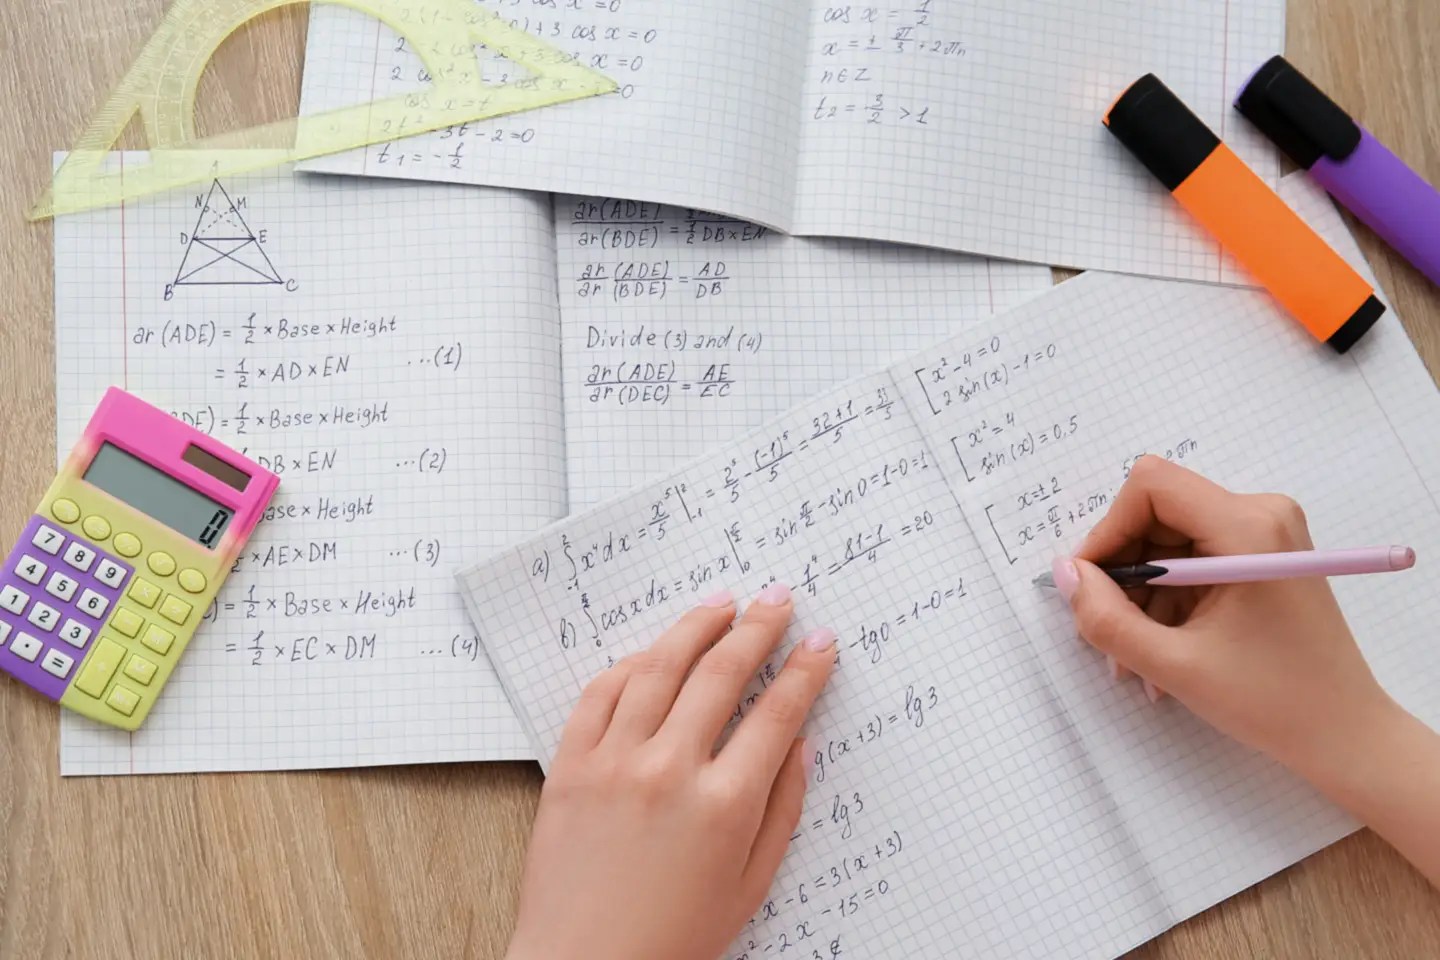 2(1-cos²x)+3 cos x=0
2 cos²x-3 cos x-2=0
cos x=t
2t²-3t-2=0
t₁=-1/2
cos x=1/2
x=±π/3+2πn
n∈Z
t₂=3/2>1
A
N M
D E
B C
ar(ADE)=1/2×Base×Height
=1/2×AD×EN ...(1)
DE)=1/2×Base×Height
DB×EN ...(2)
ase×Height
×AE×DM ...(3)
)=1/2×Base×Height
=1/2×EC×DM ...(4)
ar(ADE)
ar(BDE)=1/2 DB×EN
ar(ADE)/ar(BDE)=AD/DB
Divide (3) and (4)
ar(ADE)/ar(DEC)=AE/EC
0
7 8 9
4 5 6
1 2 3
. =
a) ∫₋₁² x⁴dx=x⁵/5|₋₁²=2⁵/5-(-1)⁵/5=32+1/5=33/5
b) ∫₀^(π/2) cos x dx=sin x|₀^(π/2)=sin π/2-sin 0=1-0=1
-1⁴/4=81-1/4=20
-tg0=1-0=1
g(x+3)=lg3
=lg3
+x-6=3(x+3)
-2x-15=0
[x²-4=0
2 sin(x)-1=0
[x²=4
sin(x)=0,5
[x=±2
x=π/6+2πn;